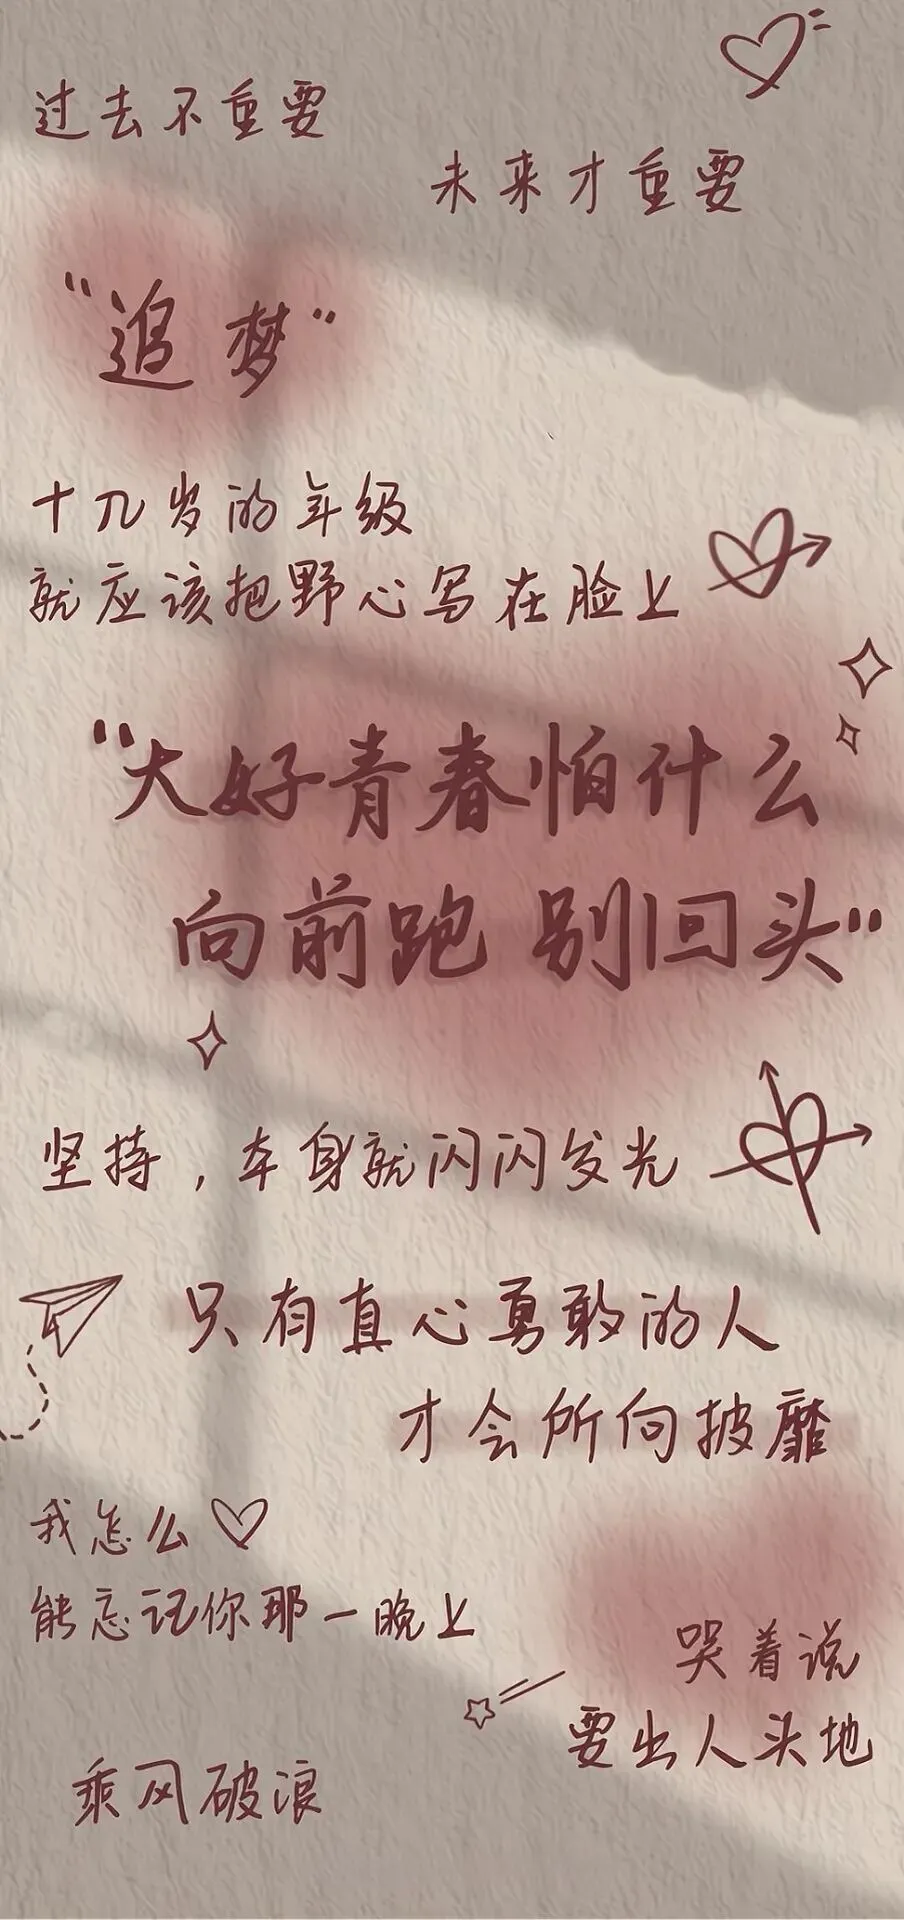 过去不重要
未来才重要
"追梦"
十几岁的年级
就应该把野心写在脸上
"大好青春怕什么
向前跑 别回头"
坚持，本身就闪闪发光
只有真心勇敢的人
才会所向披靡
我怎么
能忘记你那一晚上
哭着说
要出人头地
乘风破浪